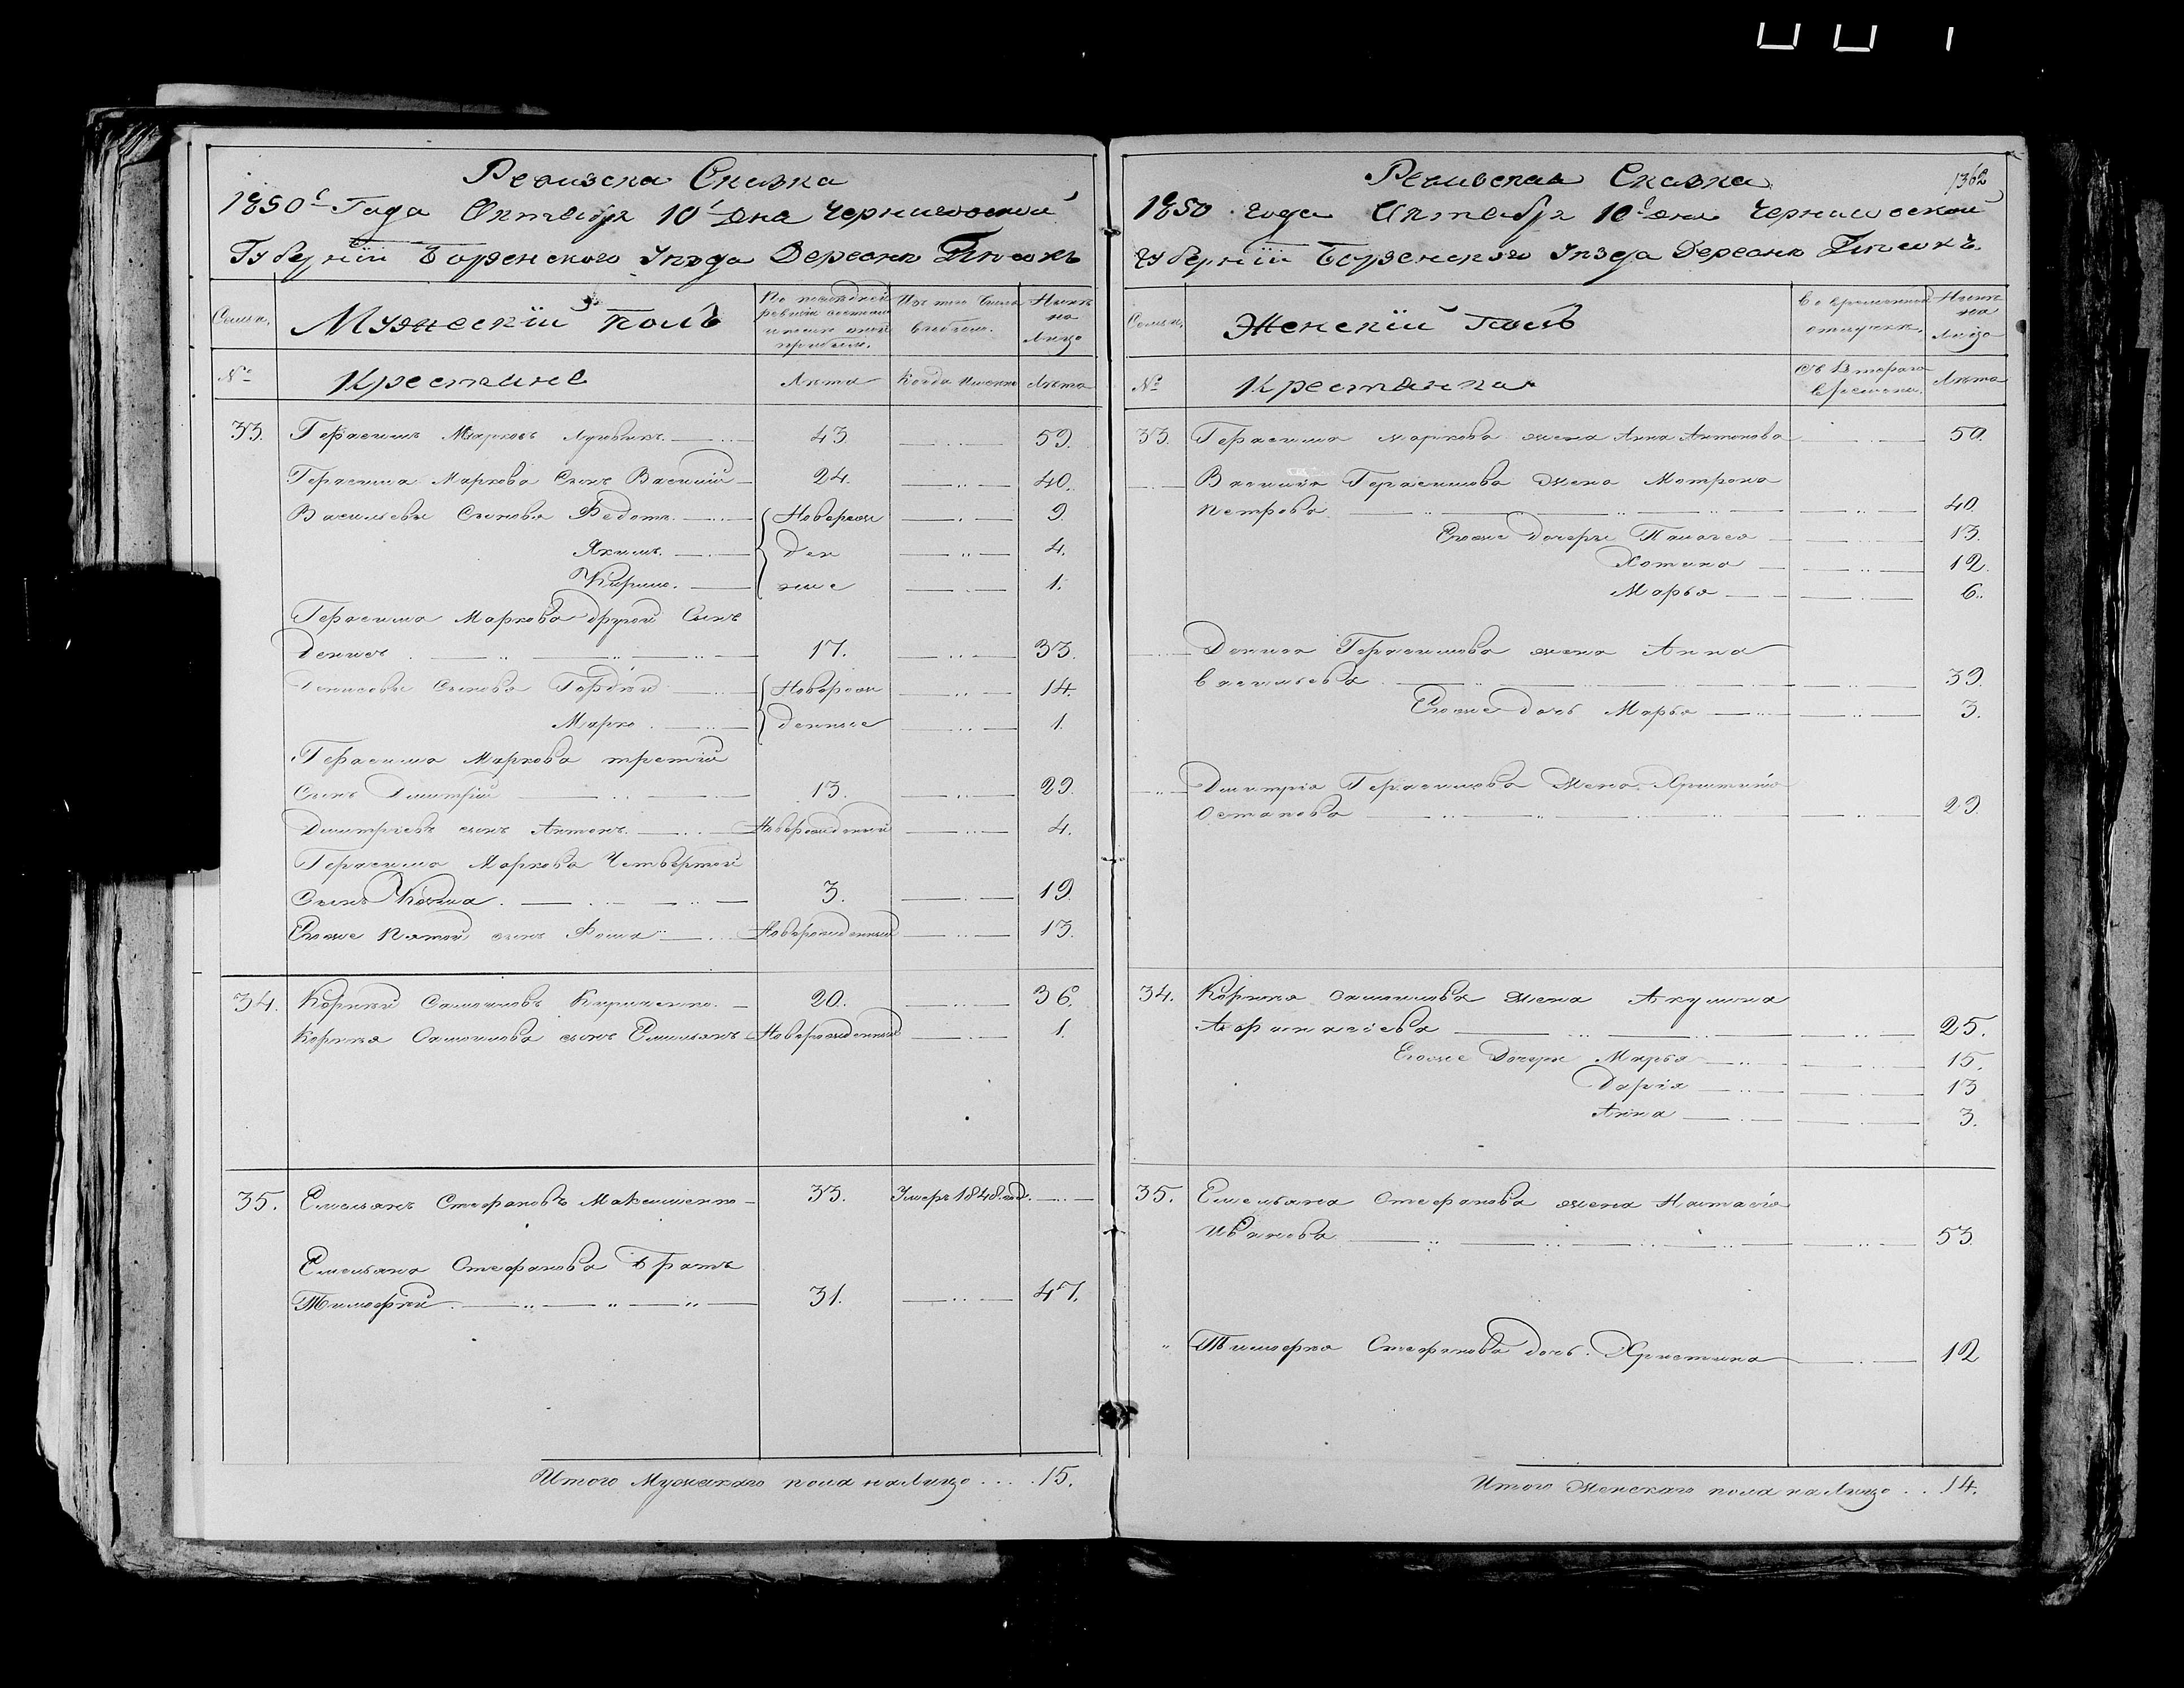 Ревизска Сказка
1850го Года Октября 10го Дня Черниговской
Губернїи Борзенского Уезда Деревни Пѣсокъ
Семьи.
Мужескїй полъ
По последней ревизїи состояло и после оной прибыло.
Изъ того Числа выбыло.
Ныне на Лицо
№
Крестьяне
Лета
Когда именно
Лета
33. Герасимъ Марковъ 43 59.
Герасима Маркова Сынъ Василий 24. 40.
Васильевы Сыновья Федотъ. Новорож 9.
Якимъ. ден 4.
Кирило. ные 1.
Герасима Маркова другой Сынъ
Денисъ 17. 33.
Денисовы Сыновья Гордѣй Новорож 14.
Марко денные 1.
Герасима Маркова третій
Сынъ Дмитрій 13. 29.
Дмитріевъ сынъ Антонъ. Новорожденный 4.
Герасима Маркова Четвертой
Сынъ Козма. 3. 19
Егоже Пятой сынъ Фома Новорожденный 13.
34. Корнѣй Самойловъ Кириченко. 20. 36.
Корнѣя Самойлова сынъ Емельянъ Новорожденный 1.
35. Емельянъ Стефановъ Максименко 33. Умеръ 1848 год.
Емельяна Стефанова Братъ
Тимофѣй 31. 47.
Итого Мужескаго пола на Лицо . . . . 15.
1362
Ревизская Сказка
1850 года Октября 10го дня Черниговской
Губернїи Борзенскаго Уезда Деревни Пѣсокъ.
Семьи.
Женскїй полъ
Во временной отлучке.
Ныне на Лицо
№
Крестьянка
Съ Которого времени.
Лета
33. Герасима Маркова жена Анна Антонова 50.
Василія Герасимова жена Мотрона
Петрова 40.
Егоже дочери 13.
12.
Марья 6.
Дениса Герасимова жена Анна
Васильева 39.
Егоже дочь Марья 3.
Дмитрія Герасимова жена Христина
Остапова 29.
34. Корнѣя Самойлова жена Акулина
Афанасіева 25.
Егоже Дочери Марья 15.
Дарія 13
Анна 3.
35. Емельяна Стефанова жена Настасія
Иванова 53.
Тимофея Стефанова дочь Христина 12
Итого Женскаго пола на Лицо . . 14.